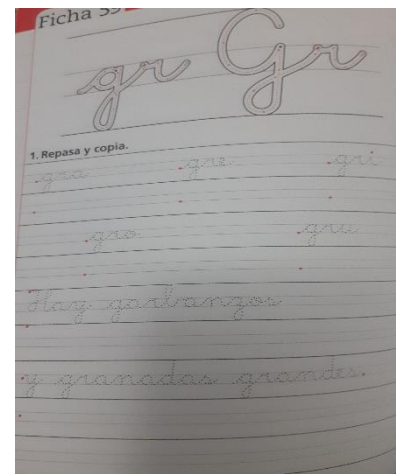 Ficha 59
gr Gr
1. Repasa y copia.
gra gre gri
gro gru
Hay garbanzos
y granadas grandes.